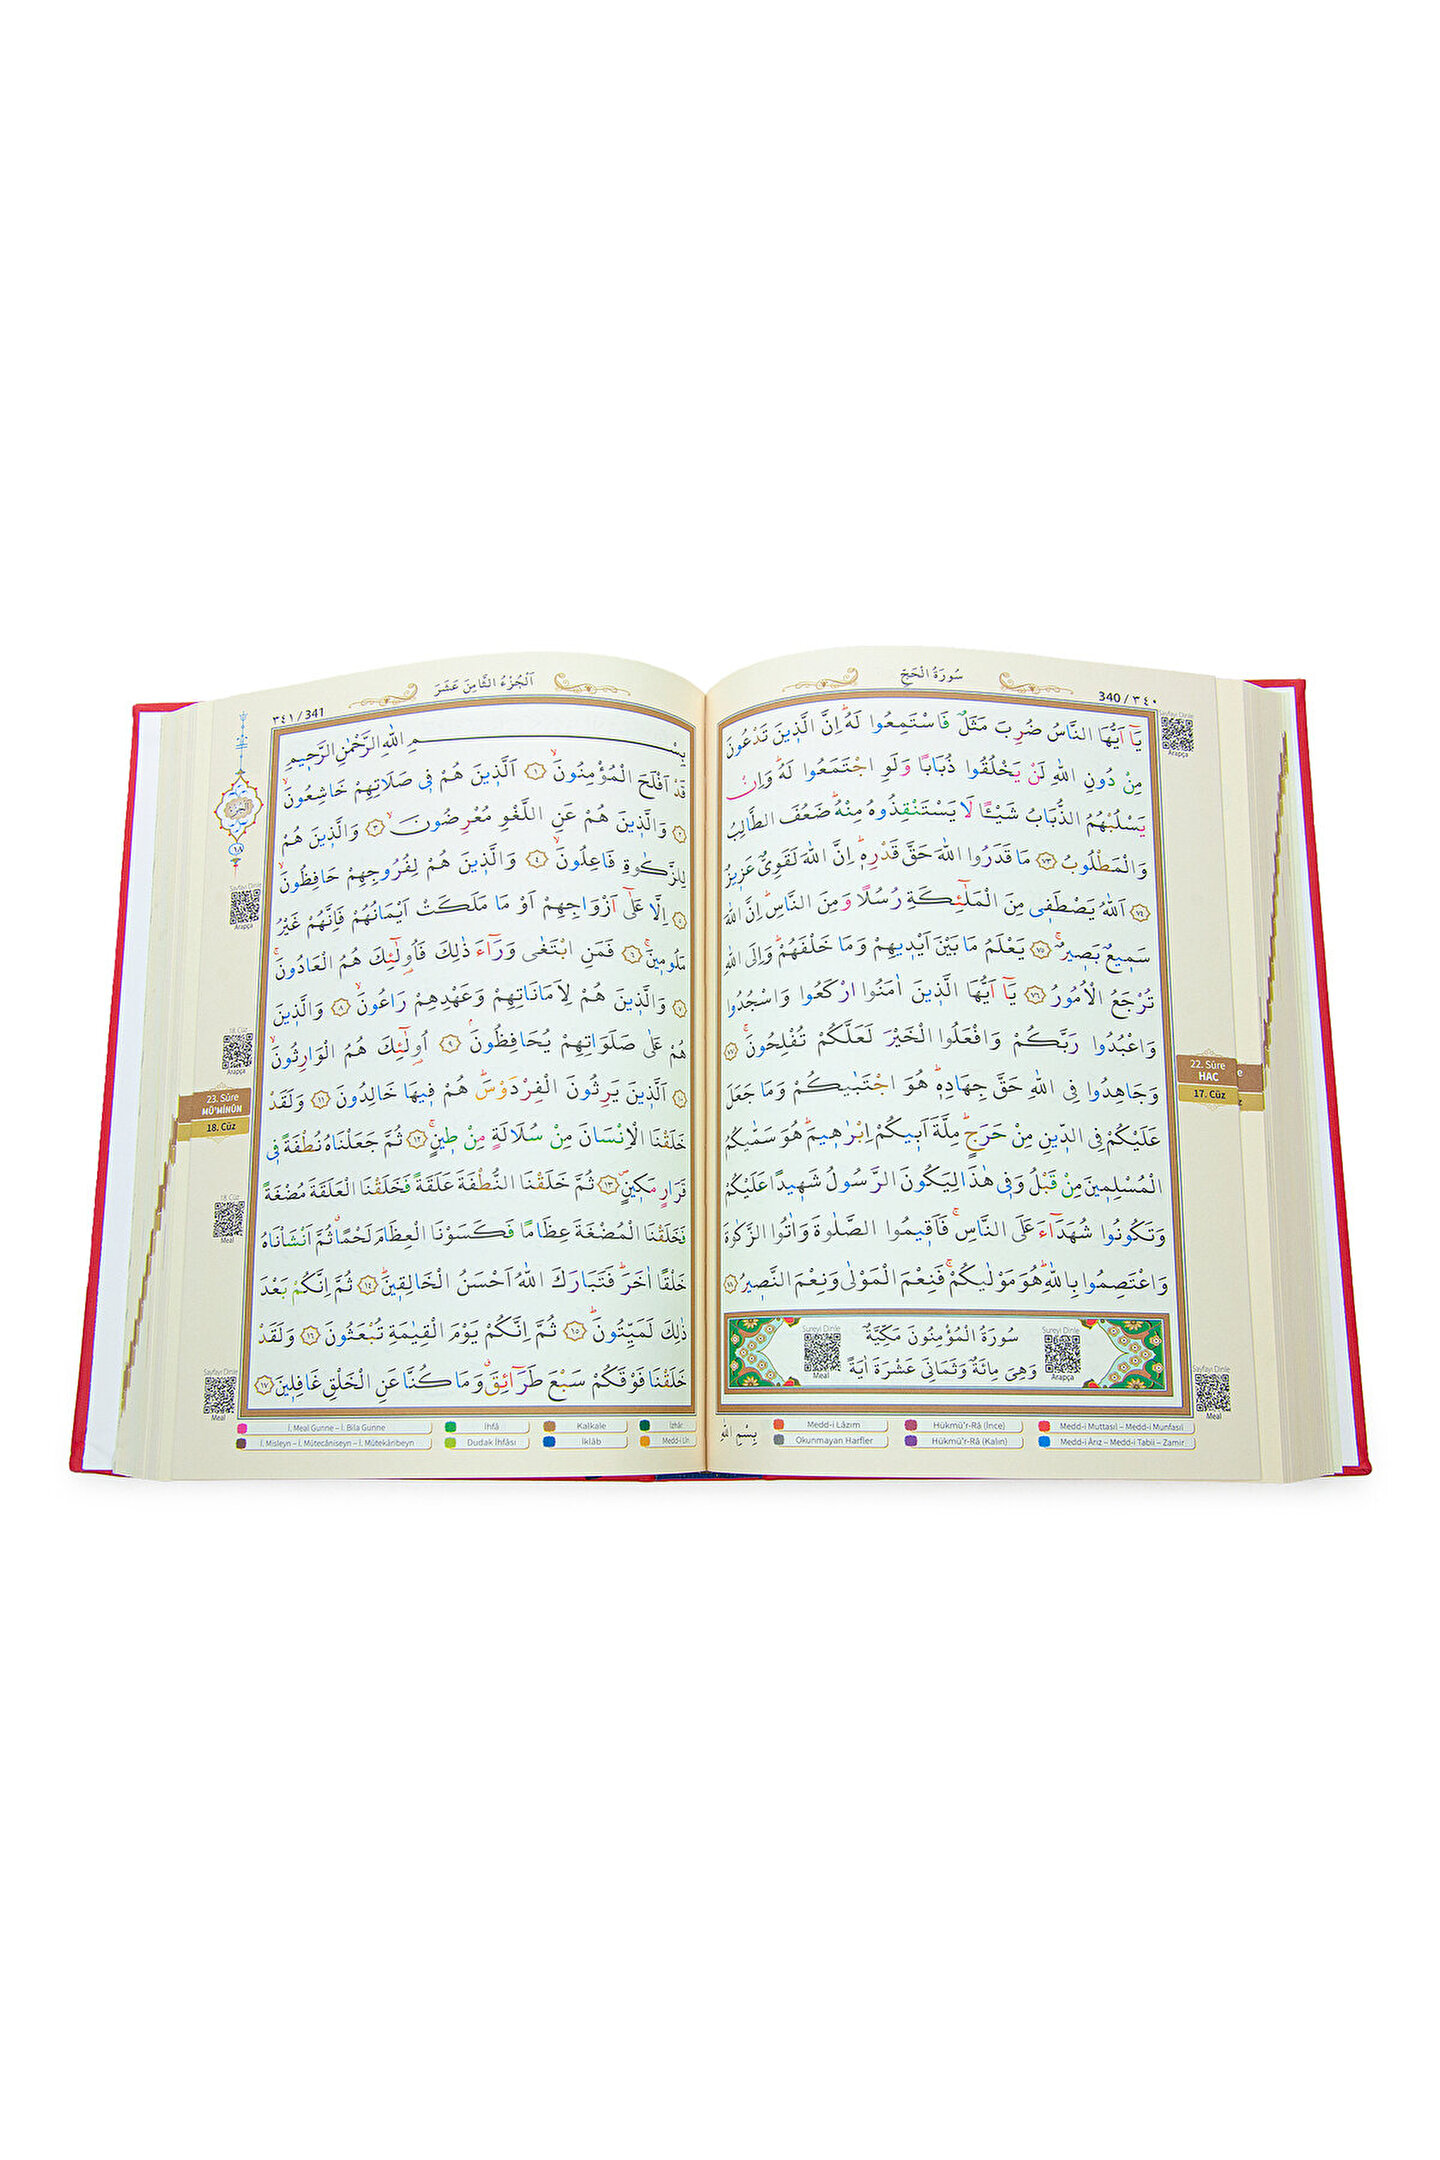 سُورَةُ الْحَجِّ
340 / ٣٤٠
يَٓا اَيُّهَا النَّاسُ ضُرِبَ مَثَلٌ فَاسْتَمِعُوا لَهُۜ اِنَّ الَّذ۪ينَ تَدْعُونَ
مِنْ دُونِ اللّٰهِ لَنْ يَخْلُقُوا ذُبَابًا وَلَوِ اجْتَمَعُوا لَهُۜ وَاِنْ
يَسْلُبْهُمُ الذُّبَابُ شَيْـًٔا لَا يَسْتَنْقِذُوهُ مِنْهُۜ ضَعُفَ الطَّالِبُ
وَالْمَطْلُوبُ ﴿٧٣﴾ مَا قَدَرُوا اللّٰهَ حَقَّ قَدْرِه۪ۜ اِنَّ اللّٰهَ لَقَوِيٌّ عَز۪يزٌ
﴿٧٤﴾ اَللّٰهُ يَصْطَف۪ي مِنَ الْمَلٰٓئِكَةِ رُسُلًا وَمِنَ النَّاسِۜ اِنَّ اللّٰهَ
سَم۪يعٌ بَص۪يرٌۚ ﴿٧٥﴾ يَعْلَمُ مَا بَيْنَ اَيْد۪يهِمْ وَمَا خَلْفَهُمْۜ وَاِلَى اللّٰهِ
تُرْجَعُ الْاُمُورُ ﴿٧٦﴾ يَٓا اَيُّهَا الَّذ۪ينَ اٰمَنُوا ارْكَعُوا وَاسْجُدُوا
وَاعْبُدُوا رَبَّكُمْ وَافْعَلُوا الْخَيْرَ لَعَلَّكُمْ تُفْلِحُونَۚ ﴿٧٧﴾
وَجَاهِدُوا فِي اللّٰهِ حَقَّ جِهَادِه۪ۜ هُوَ اجْتَبٰيكُمْ وَمَا جَعَلَ
عَلَيْكُمْ فِي الدّ۪ينِ مِنْ حَرَجٍۜ مِلَّةَ اَب۪يكُمْ اِبْرٰه۪يمَۜ هُوَ سَمّٰيكُمُ
الْمُسْلِم۪ينَ مِنْ قَبْلُ وَف۪ي هٰذَا لِيَكُونَ الرَّسُولُ شَه۪يدًا عَلَيْكُمْ
وَتَكُونُوا شُهَدَٓاءَ عَلَى النَّاسِۚ فَاَق۪يمُوا الصَّلٰوةَ وَاٰتُوا الزَّكٰوةَ
وَاعْتَصِمُوا بِاللّٰهِۜ هُوَ مَوْلٰيكُمْۚ فَنِعْمَ الْمَوْلٰى وَنِعْمَ النَّص۪يرُ ﴿٧٨﴾
سُورَةُ الْمُؤْمِنُونَ مَكِّيَّةٌ
وَهِيَ مِائَةٌ وَثَمَانِيَ عَشْرَةَ اٰيَةً
Sureyi Dinle
Meal
Sureyi Dinle
Arapça
Sayfayı Dinle
Arapça
22. Sûre
HAC
17. Cüz
Sayfayı Dinle
Meal
بِسْمِ اللّٰهِ
Medd-i Lâzım
Hükmü'r-Râ (İnce)
Medd-i Muttasıl – Medd-i Munfasıl
Okunmayan Harfler
Hükmü'r-Râ (Kalın)
Medd-i Ârız – Medd-i Tabii – Zamir
اَلْجُزْءُ الثَّامِنَ عَشَرَ
٣٤١ / 341
بِسْمِ اللّٰهِ الرَّحْمٰنِ الرَّح۪يمِ
قَدْ اَفْلَحَ الْمُؤْمِنُونَۙ ﴿١﴾ اَلَّذ۪ينَ هُمْ ف۪ي صَلَاتِهِمْ خَاشِعُونَۙ
﴿٢﴾ وَالَّذ۪ينَ هُمْ عَنِ اللَّغْوِ مُعْرِضُونَۙ ﴿٣﴾ وَالَّذ۪ينَ هُمْ
لِلزَّكٰوةِ فَاعِلُونَۙ ﴿٤﴾ وَالَّذ۪ينَ هُمْ لِفُرُوجِهِمْ حَافِظُونَۙ
﴿٥﴾ اِلَّا عَلٰٓى اَزْوَاجِهِمْ اَوْ مَا مَلَكَتْ اَيْمَانُهُمْ فَاِنَّهُمْ غَيْرُ
مَلُوم۪ينَۚ ﴿٦﴾ فَمَنِ ابْتَغٰى وَرَٓاءَ ذٰلِكَ فَاُو۬لٰٓئِكَ هُمُ الْعَادُونَۚ
﴿٧﴾ وَالَّذ۪ينَ هُمْ لِاَمَانَاتِهِمْ وَعَهْدِهِمْ رَاعُونَۙ ﴿٨﴾ وَالَّذ۪ينَ
هُمْ عَلٰى صَلَوَاتِهِمْ يُحَافِظُونَۢ ﴿٩﴾ اُو۬لٰٓئِكَ هُمُ الْوَارِثُونَۙ
﴿١٠﴾ اَلَّذ۪ينَ يَرِثُونَ الْفِرْدَوْسَۜ هُمْ ف۪يهَا خَالِدُونَ ﴿١١﴾ وَلَقَدْ
خَلَقْنَا الْاِنْسَانَ مِنْ سُلَالَةٍ مِنْ ط۪ينٍۚ ﴿١٢﴾ ثُمَّ جَعَلْنَاهُ نُطْفَةً ف۪ي
قَرَارٍ مَك۪ينٍۖ ﴿١٣﴾ ثُمَّ خَلَقْنَا النُّطْفَةَ عَلَقَةً فَخَلَقْنَا الْعَلَقَةَ مُضْغَةً
فَخَلَقْنَا الْمُضْغَةَ عِظَامًا فَكَسَوْنَا الْعِظَامَ لَحْمًاۗ ثُمَّ اَنْشَأْنَاهُ
خَلْقًا اٰخَرَۜ فَتَبَارَكَ اللّٰهُ اَحْسَنُ الْخَالِق۪ينَۜ ﴿١٤﴾ ثُمَّ اِنَّكُمْ بَعْدَ
ذٰلِكَ لَمَيِّتُونَۜ ﴿١٥﴾ ثُمَّ اِنَّكُمْ يَوْمَ الْقِيٰمَةِ تُبْعَثُونَ ﴿١٦﴾ وَلَقَدْ
خَلَقْنَا فَوْقَكُمْ سَبْعَ طَرَٓائِقَۗ وَمَا كُنَّا عَنِ الْخَلْقِ غَافِل۪ينَ ﴿١٧﴾
١٨
Sayfayı Dinle
Arapça
18. Cüz
Arapça
23. Sûre
MÜ'MİNÛN
18. Cüz
18. Cüz
Meal
Sayfayı Dinle
Meal
İ. Meal Gunne – İ. Bila Gunne
İhfâ
Kalkale
İzhâr
İ. Misleyn – İ. Mütecâniseyn – İ. Mütekâribeyn
Dudak İhfâsı
İklâb
Medd-i Lin